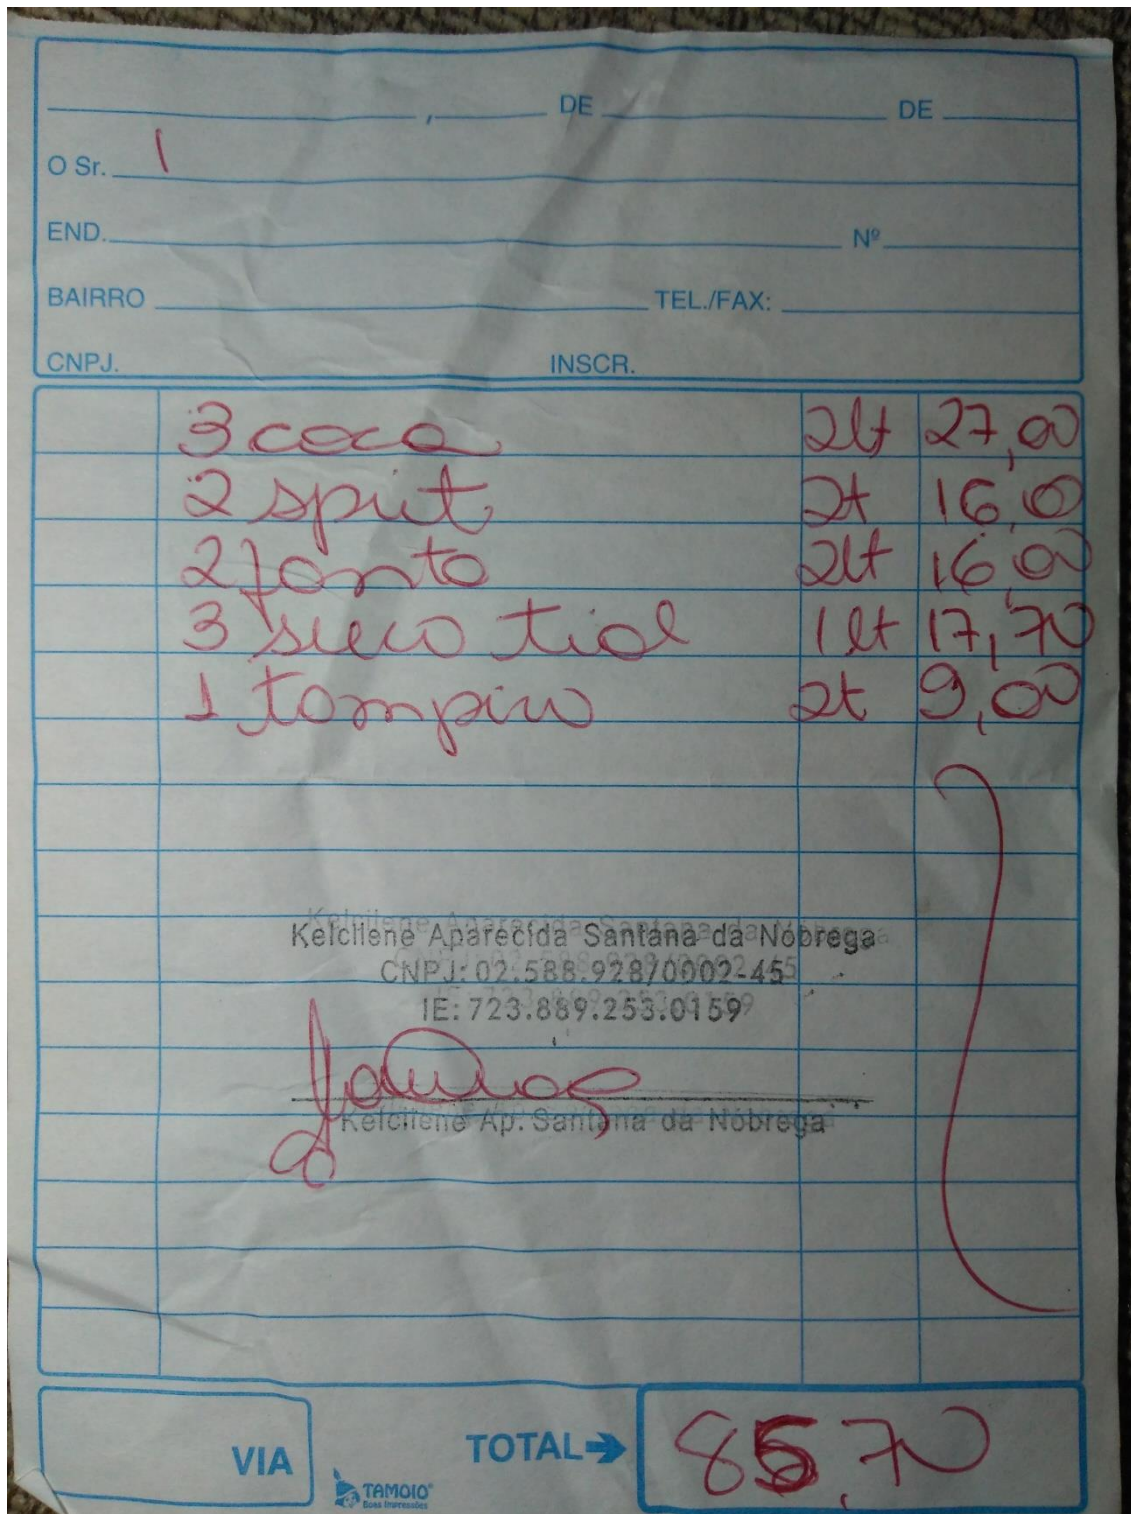 , DE DE
O Sr. 1
END. Nº
BAIRRO TEL./FAX:
CNPJ. INSCR.
3 coca 2lt 27,00
2 sprit 2t 16,00
2 fanta 2lt 16,00
3 suco tial 1 lt 17,70
1 tampico 2t 9,00
Kelcilene Aparecida Santana da Nóbrega
CNPJ: 02.588.928/0002-45
IE: 723.889.253.0159
Kelcilene Ap. Santana da Nóbrega
VIA TOTAL 85,70
TAMOIO
Boas Impressões